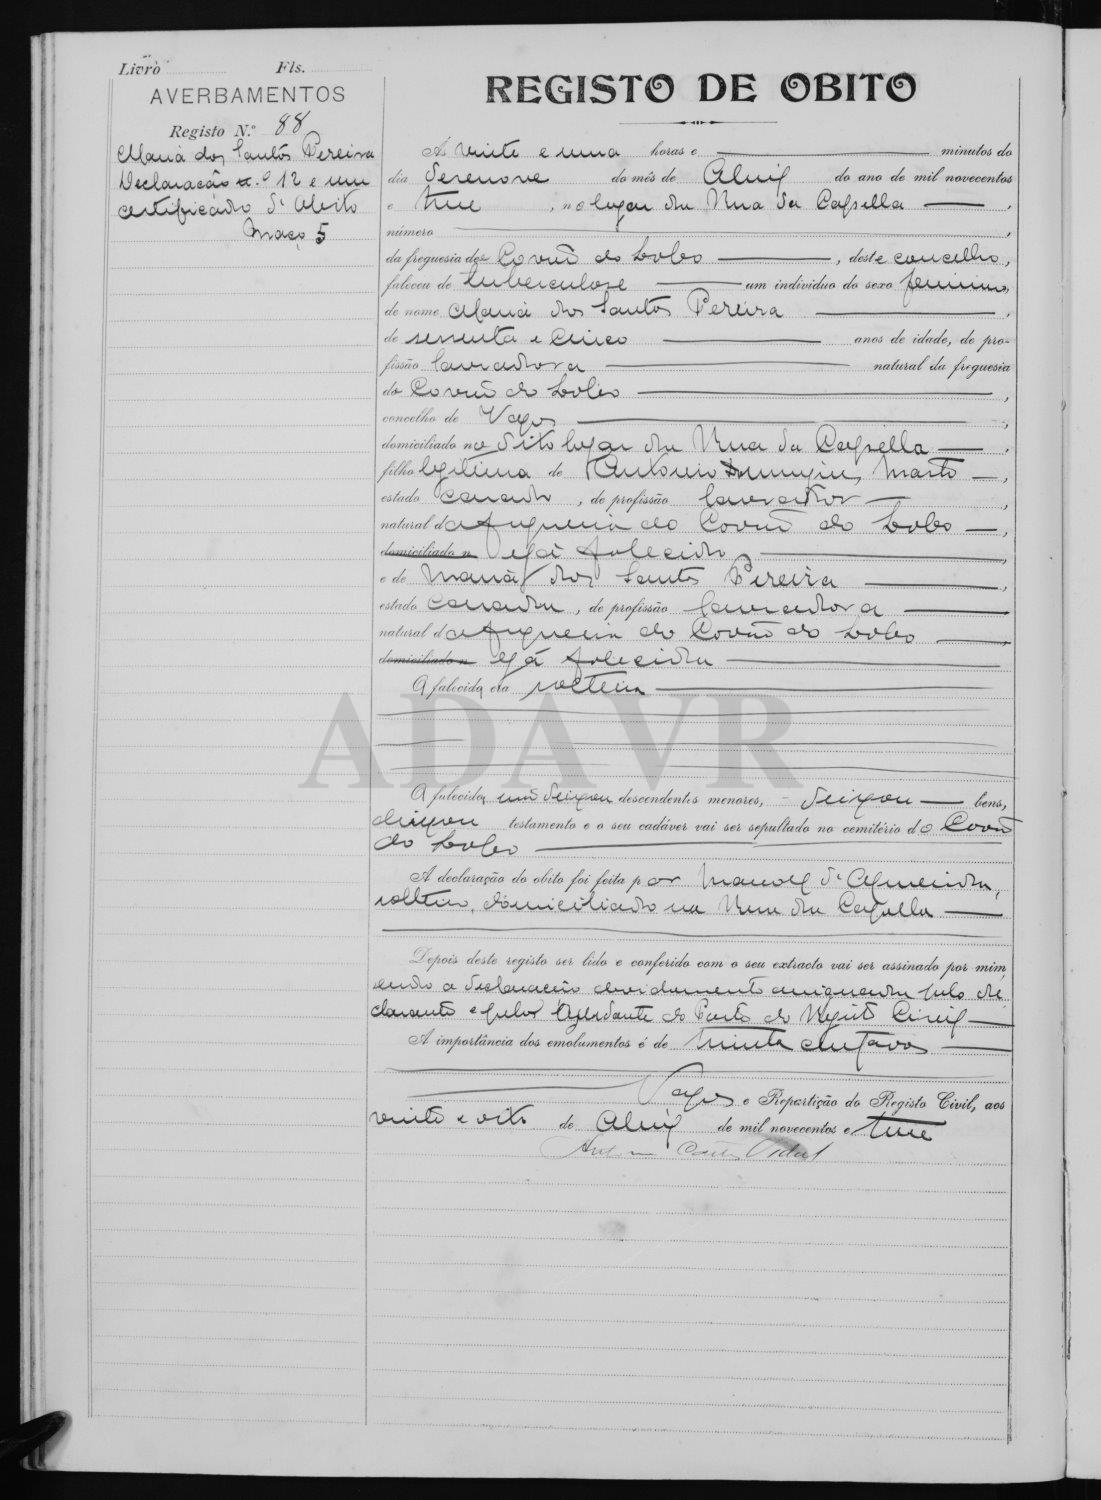 Livro Fls.
AVERBAMENTOS
Registo N.º 88
Maria dos Santos Pereira
Declaração n.º 12 e um
certificado d'obito
Maço 5
REGISTO DE OBITO
Às vinte e uma horas e minutos do
dia desenove do mês de Abril do ano de mil novecentos
e trinta, no lugar da Rua da Capella,
número
da freguesia de Covão do Lobo, deste concelho,
faleceu de tuberculose um individuo do sexo feminino,
de nome Maria dos Santos Pereira,
de sessenta e cinco anos de idade, de pro-
fissão lavradora natural da freguesia
do Covão do Lobo,
concelho de Vagos,
domiciliado no dito lugar da Rua da Capella,
filho legitima de Antonio Domingues Marto,
estado casado, de profissão lavrador,
natural da freguesia do Covão do Lobo,
domiciliado n e já falecido,
e de Maria dos Santos Pereira,
estado casada, de profissão lavradora,
natural da freguesia do Covão do Lobo,
domiciliado n e já falecida
A falecida era solteira
ADAVR
A falecida não deixou descendentes menores, deixou bens,
deixou testamento e o seu cadáver vai ser sepultado no cemitério do Covão
do Lobo
A declaração do obito foi feita por Manoel d'Almeida,
solteiro, domiciliado na Rua da Capella
Depois deste registo ser lido e conferido com o seu extracto vai ser assinado por mim
sendo a declaração devidamente assignada pelo de
clarante e pelo Ajudante do Posto do Registo Civil
A importância dos emolumentos é de trinta centavos
Vagos e Repartição do Registo Civil, aos
vinte e oito de Abril de mil novecentos e
Vidal